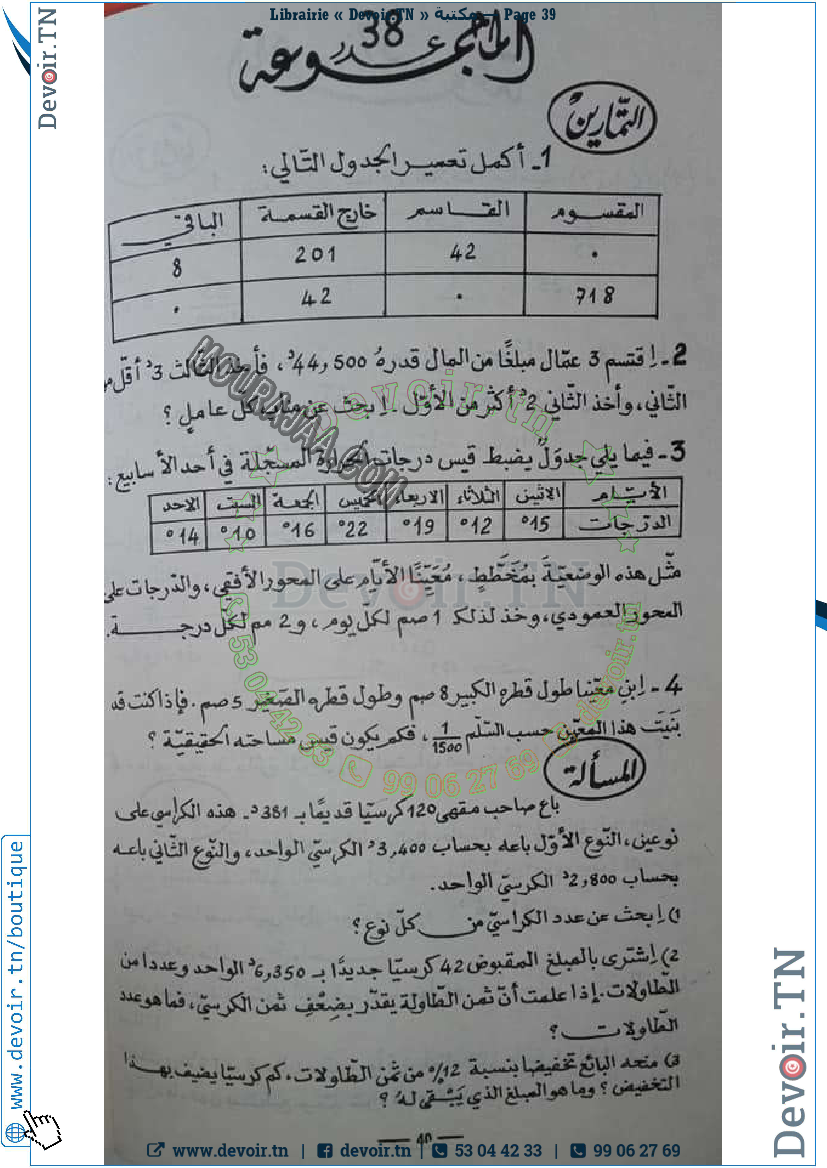 Librairie « Devoir.TN » مكتبة — Page 39
Devoir.TN
المجموعة عدد 38
التمارين
1- أكمل تعمير الجدول التالي :
المقسوم القاسم خارج القسمة الباقي
. 42 201 8
718 . 42 .
2- اقتسم 3 عمّال مبلغًا من المال قدره 44,500د، فأخذ الثالث 3د أقلّ من
الثاني، وأخذ الثاني 2د أكثر من الأوّل. ابحث عن مناب كل عامل ؟
3- فيما يلي جدول يضبط قيس درجات الحرارة المسجّلة في أحد الأسابيع :
الأيّام الاثنين الثلاثاء الاربعاء الخميس الجمعة السبت الاحد
الدّرجات 15° 12° 19° 22° 16° 10° 14°
مثّل هذه الوضعيّة بمخطّط، مُعيّنًا الأيّام على المحور الأفقي، والدّرجات على
المحور العمودي، وخذ لذلك 1 صم لكلّ يوم، و 2 مم لكل درجة.
4- اِبنِ معيّنا طول قطره الكبير 8 صم وطول قطره الصّغير 5 صم. فإذا كنت قد
بنيتَ هذا المعيّن حسب السّلّم 1/1500، فكم يكون قيس مساحته الحقيقيّة ؟
المسألة
باع صاحب مقهى 120 كرسيّا قديمًا بـ 381د. هذه الكراسي على
نوعين، النّوع الأوّل باعه بحساب 3,400د الكرسيّ الواحد، والنّوع الثّاني باعه
بحساب 2,800د الكرسيّ الواحد.
1) اِبحث عن عدد الكراسيّ من كلّ نوع ؟
2) اِشترى بالمبلغ المقبوض 42 كرسيّا جديدًا بـ 6,350د الواحد وعددا من
الطّاولات. إذا علمت أنّ ثمن الطّاولة يقدّر بضِعْفِ ثمن الكرسيّ، فما هو عدد
الطّاولات ؟
3) منحه البائع تخفيضا بنسبة 12% من ثمن الطّاولات، كم كرسيّا يضيف بهذا
التخفيض ؟ وما هو المبلغ الذي يَبْقَى لهُ ؟
— 40 —
MOURAJAA.COM
Devoir.tn
Devoir.TN
53 04 42 33 99 06 27 69 devoir.tn
www.devoir.tn/boutique
Devoir.TN
www.devoir.tn | devoir.tn | 53 04 42 33 | 99 06 27 69